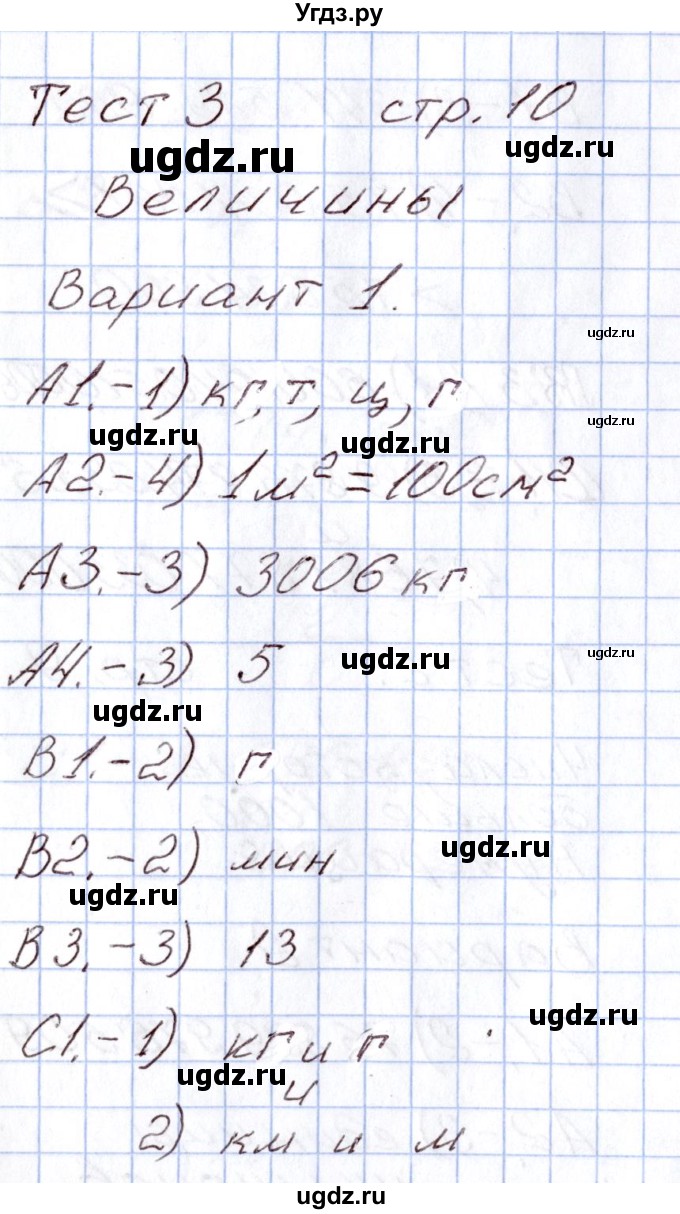 Угдз.ру
Тест 3 стр. 10
ugdz.ru ugdz.ru
Величины
Вариант 1.
ugdz.ru
А1.-1) кг, т, ц, г
ugdz.ru ugdz.ru ugdz.ru
А2.-4) 1м²=100см²
А3.-3) 3006 кг
А4.-3) 5
ugdz.ru ugdz.ru
ugdz.ru
В1.-2) г
В2.-2) мин
ugdz.ru
ugdz.ru
В3.-3) 13
ugdz.ru
С1.-1) кг и г
ugdz.ru
и
2) км и м
ugdz.ru